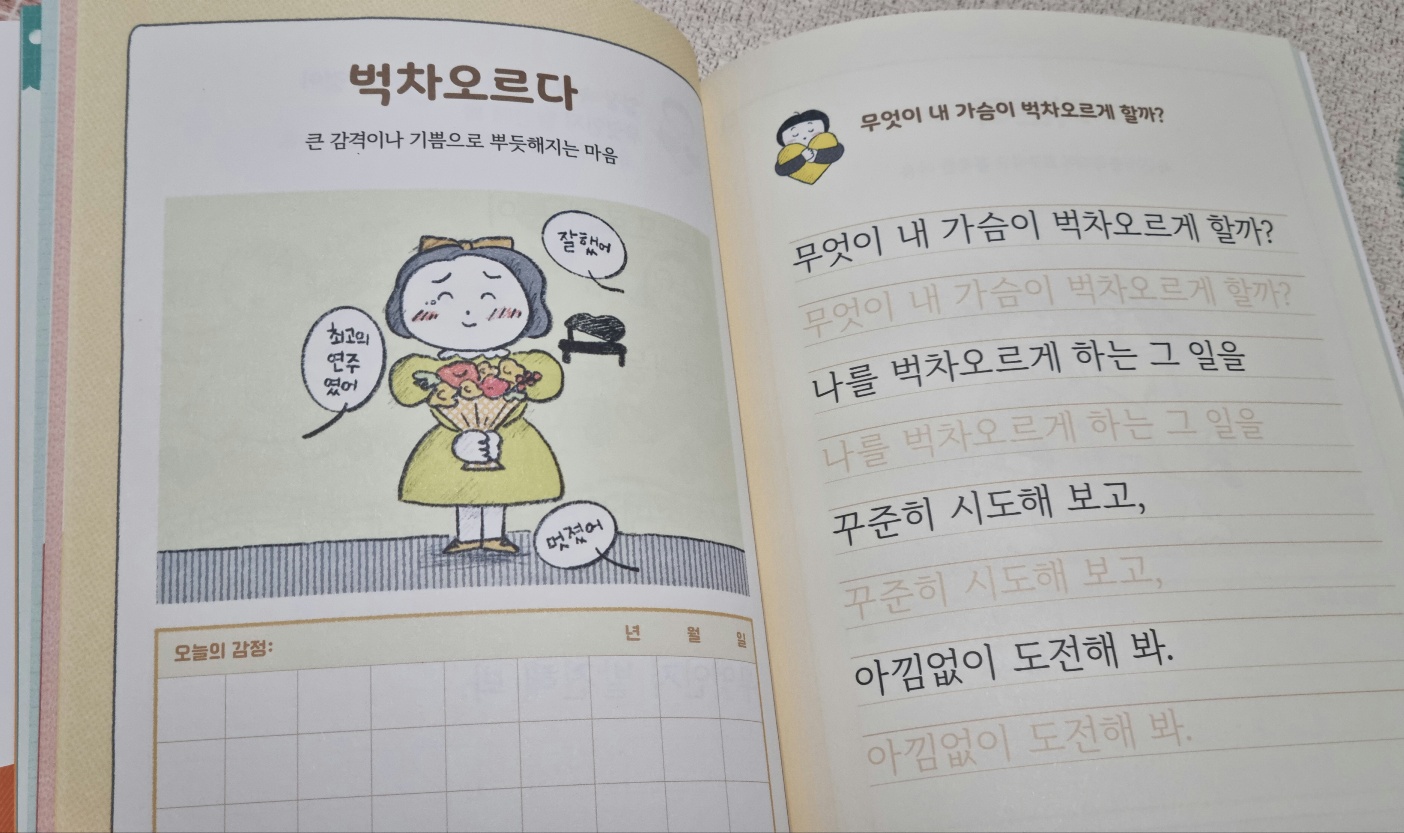 벅차오르다
큰 감격이나 기쁨으로 뿌듯해지는 마음
잘했어
최고의
연주
였어
멋졌어
오늘의 감정:
년 월 일
무엇이 내 가슴이 벅차오르게 할까?
무엇이 내 가슴이 벅차오르게 할까?
무엇이 내 가슴이 벅차오르게 할까?
나를 벅차오르게 하는 그 일을
나를 벅차오르게 하는 그 일을
꾸준히 시도해 보고,
꾸준히 시도해 보고,
아낌없이 도전해 봐.
아낌없이 도전해 봐.